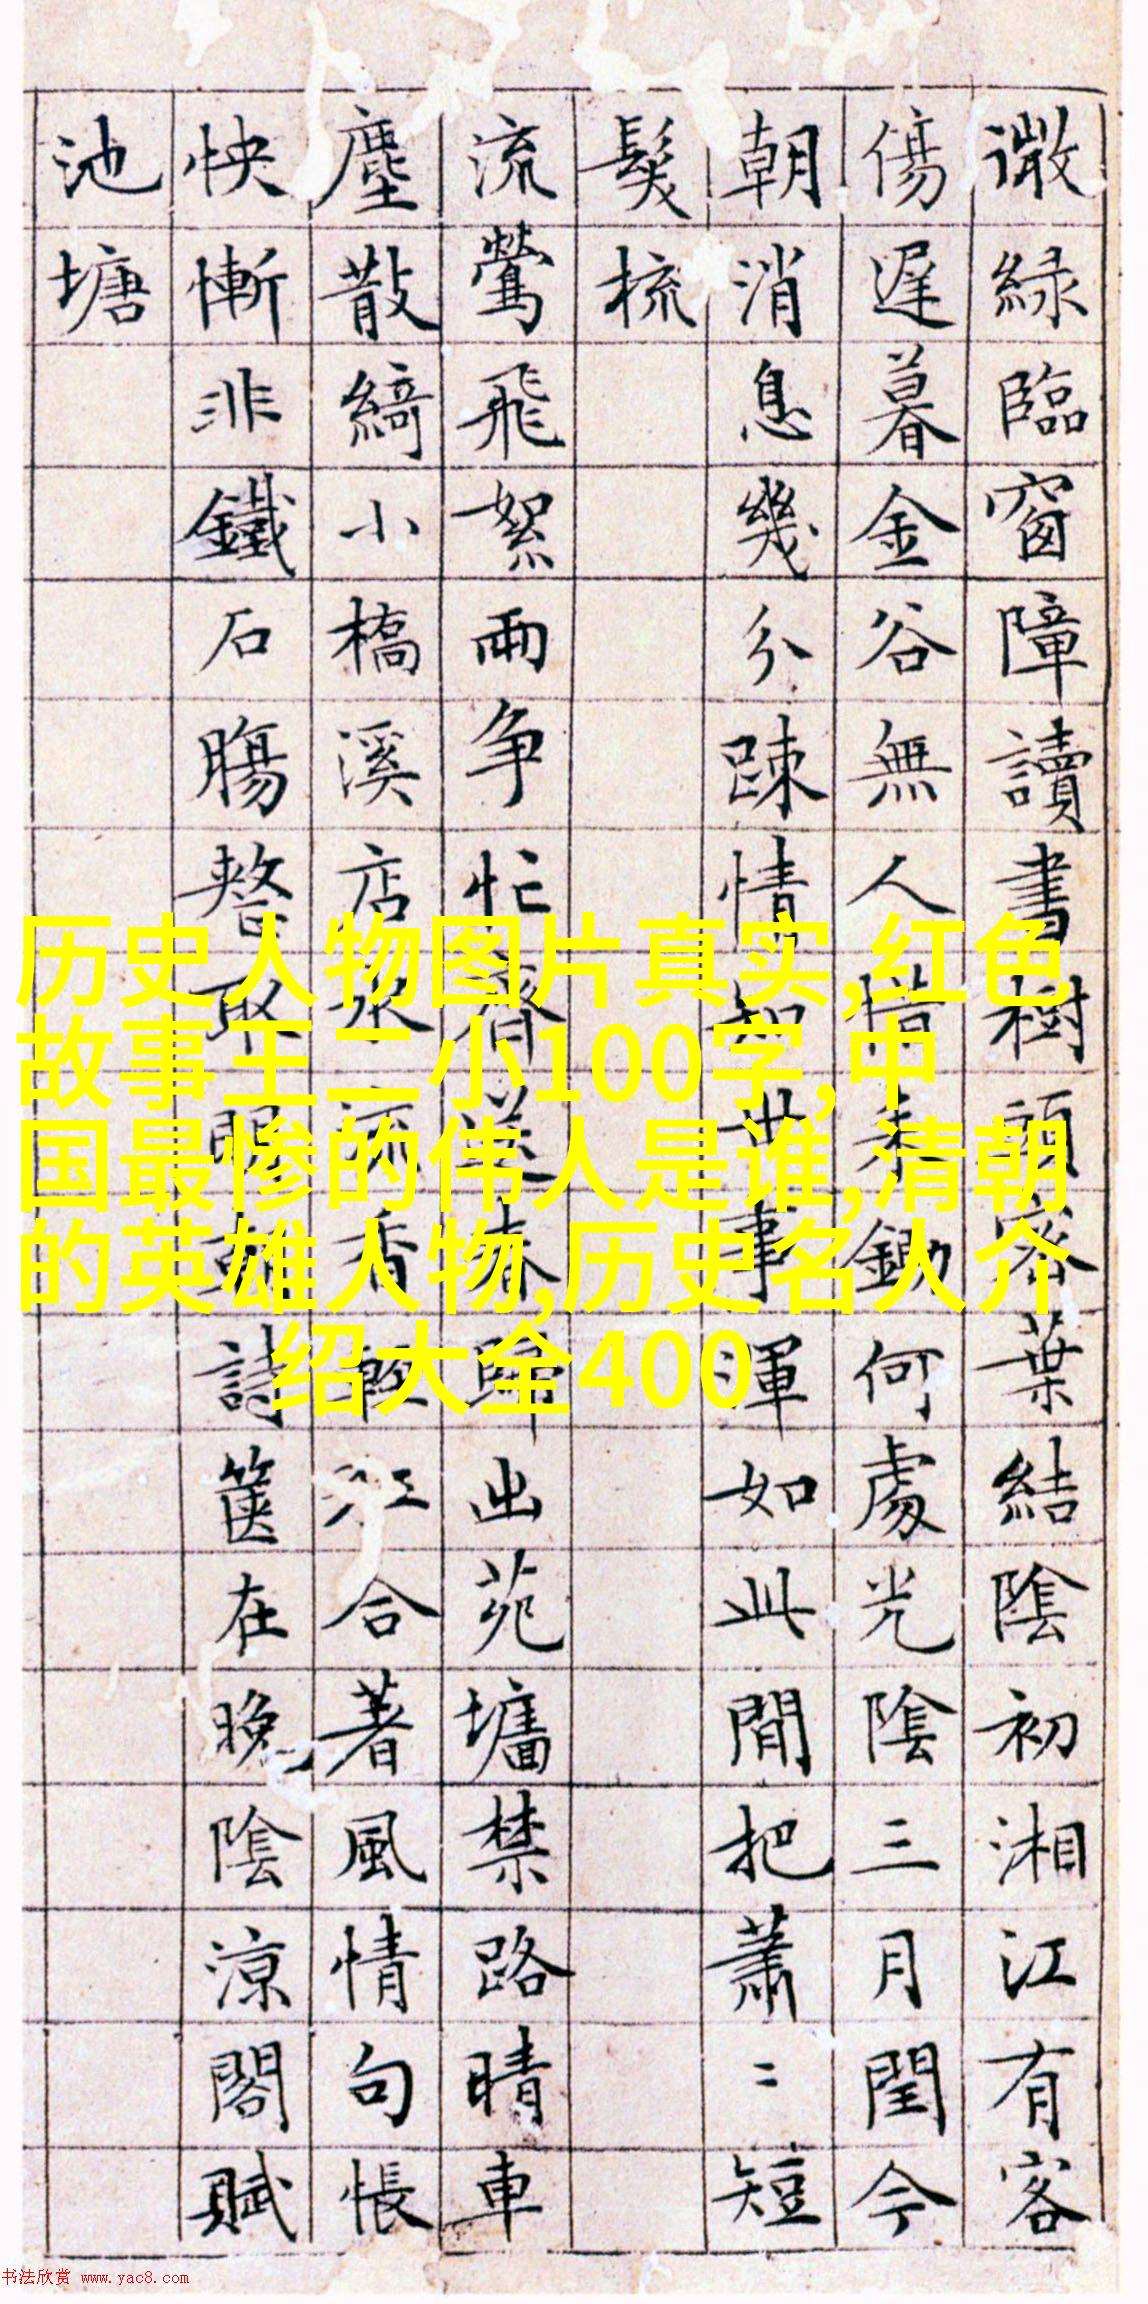 微綠臨窗障讀書樹頭密葉結陰初湘江有客
傷遲暮金谷無人惜未鋤何處光陰三月閏今
朝消息幾分踈情知世事渾如此間把蕭〻短
鬓梳
流鶯飛絮兩争忙齊送春歸出苑墻禁路晴車
塵散綺小橋溪店水流香輕江合著風情句悵
怏慚非鐵石腸整取詩篋在晚陰涼閣賦
池塘
历史人物图片真实,红色
故事王二小100字,中
国最惨的伟人是谁,清朝
的英雄人物,历史名人介
绍大全400
书法欣赏 www.yac8.com